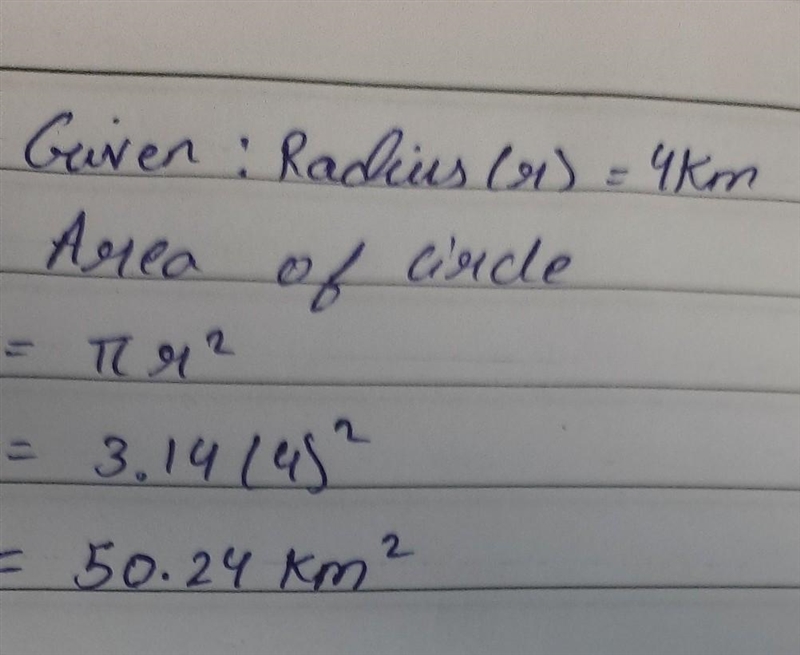 Given : Radius (r) = 4 Km
Area of circle
= πr²
= 3.14 (4)²
= 50.24 Km²